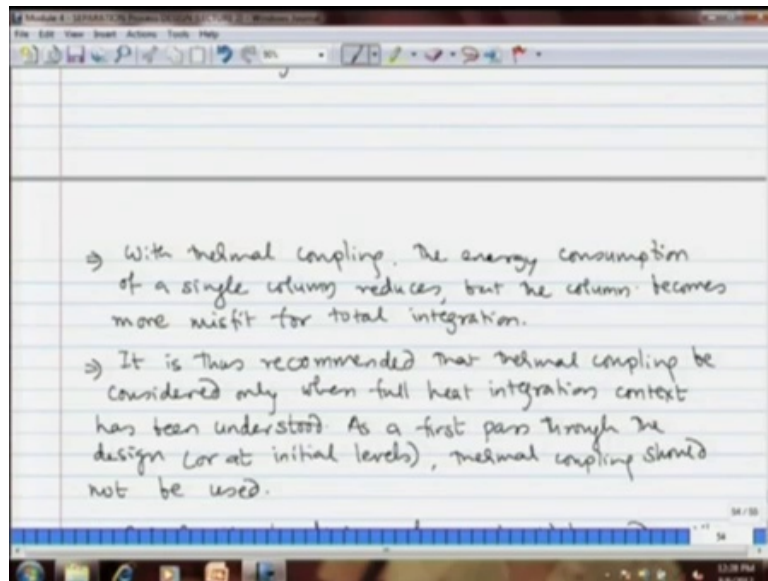 Module 4 - SEPARATION Process DESIGN (LECTURE 2) - Windows Journal
File Edit View Insert Actions Tools Help
90%
⇒ With thermal coupling. The energy consumption
of a single column reduces, but the column becomes
more misfit for total integration.
⇒ It is thus recommended that thermal coupling be
considered only when full heat integration context
has been understood. As a first pass through the
design (or at initial levels), thermal coupling should
not be used.
54 / 55
54
12:08 PM